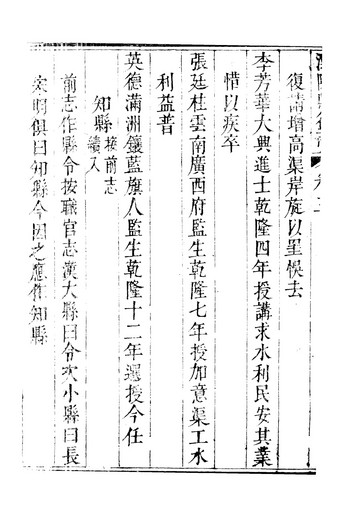 復請增高渠岸旋以罣悞去
李芳華大興進士乾隆四年授講求水利民安其業
惜以疾卒
張廷桂雲南廣西府監生乾隆七年授加意渠工水
利益普
英德滿洲鑲藍旗人監生乾隆十二年選授今任
知縣接前志續入
前志作縣令按職官志漢大縣曰令次小縣曰長
宋明俱曰知縣今因之應作知縣